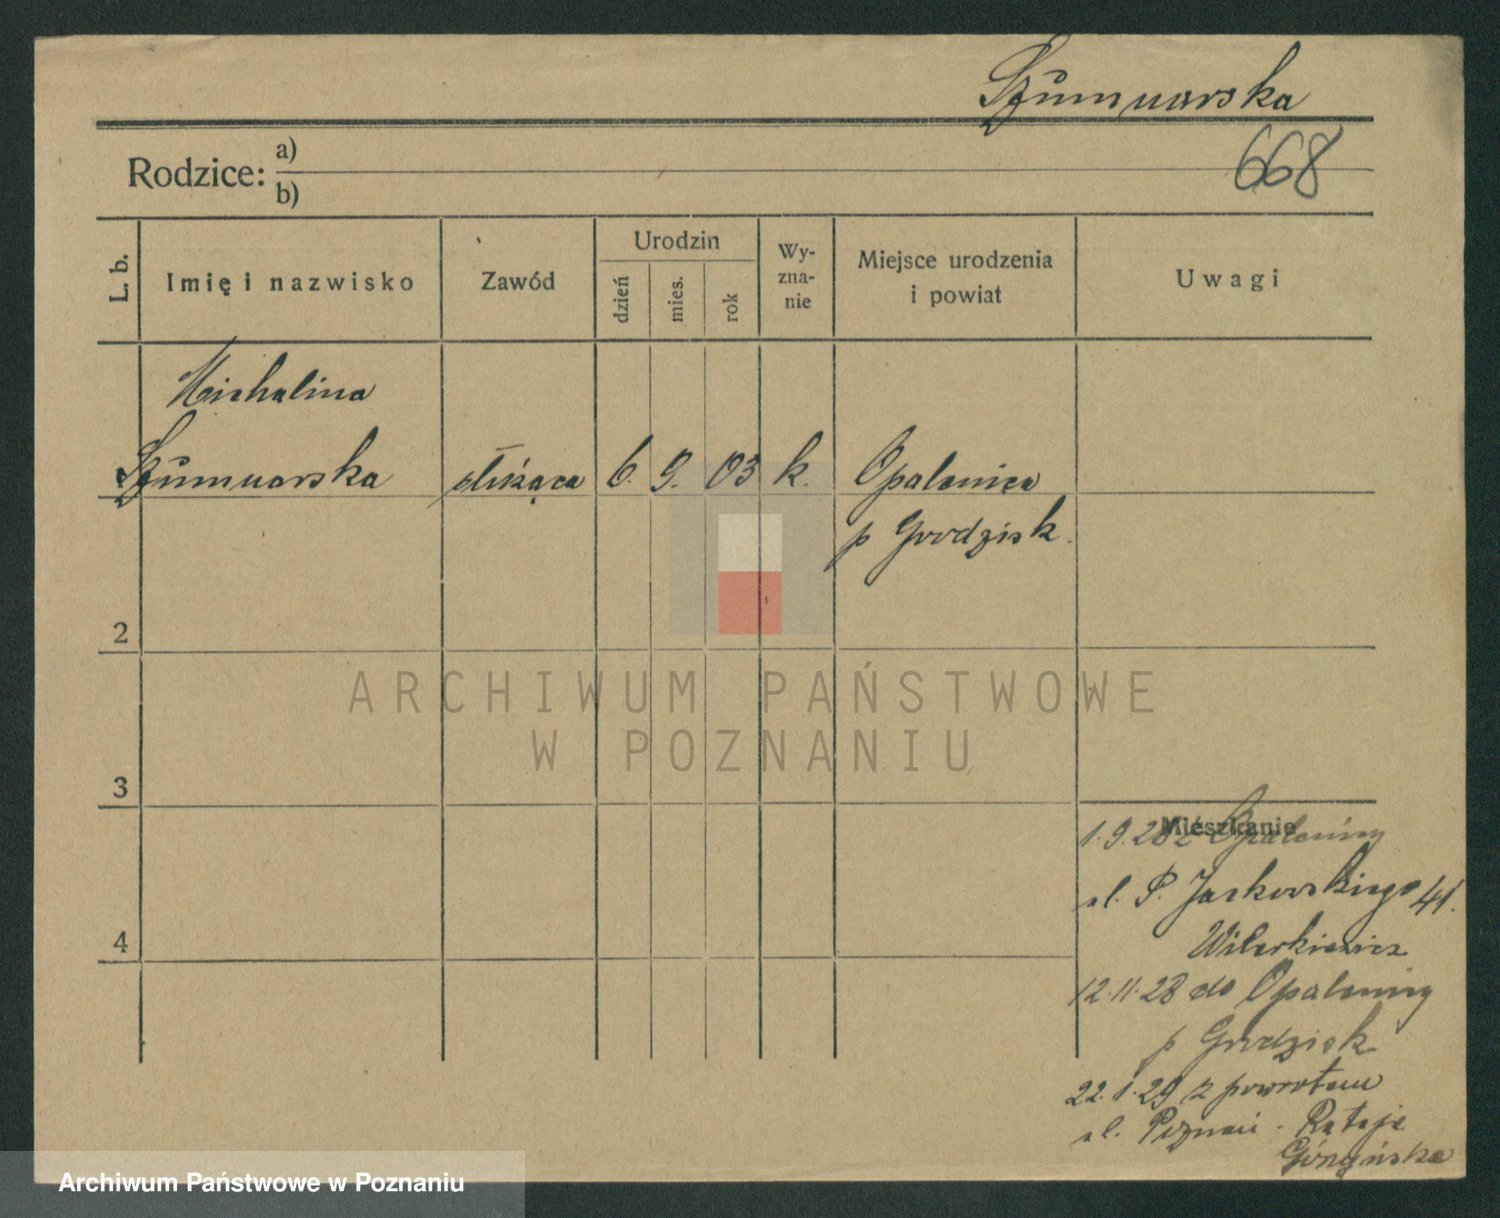 Szumnarska
668
Rodzice: a)
b)
L. b.
Imię i nazwisko
Zawód
Urodzin
dzień
mies.
rok
Wy-
zna-
nie
Miejsce urodzenia
i powiat
Uwagi
Michalina
Szumnarska służąca 6. 9. 03 k. Opalenica
p Grodzisk.
2
3
4
Mieszkanie
1.9.28 z Opalenicy
ul. P. Jackowskiego 41.
12.11.28 do Opalenicy
p Grodzisk
22.1.29 z powrotem
ul. Poznań - Rataje
ARCHIWUM PAŃSTWOWE
W POZNANIU
Archiwum Państwowe w Poznaniu